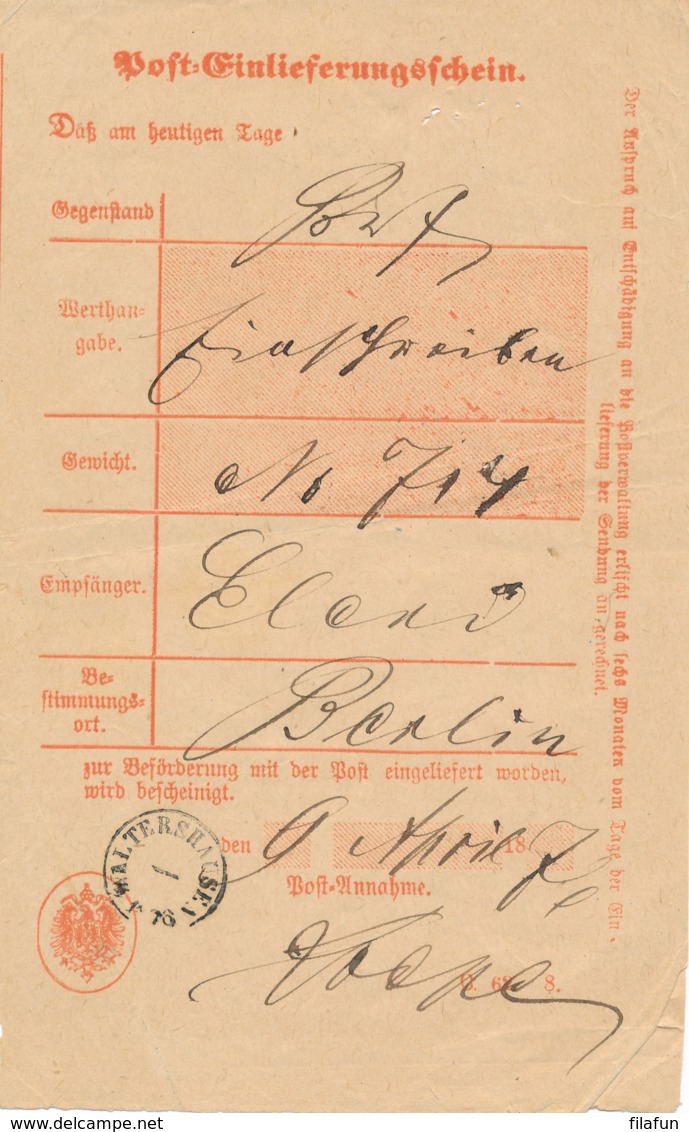 Post-Einlieferungsschein.
Daß am heutigen Tage
Gegenstand
Brief
Werthan-
gabe.
Einschreiben
Gewicht.
No 714
Empfänger.
Be-
stimmungs-
ort.
Berlin
zur Beförderung mit der Post eingeliefert worden,
wird bescheinigt.
den 9 April 18
WALTERSHAUSEN
76
Post-Annahme.
8.
Der Anspruch auf Entschädigung an die Postverwaltung erlischt nach sechs Monaten vom Tage der Ein-
lieferung der Sendung an gerechnet.
www.delcampe.net
filafun